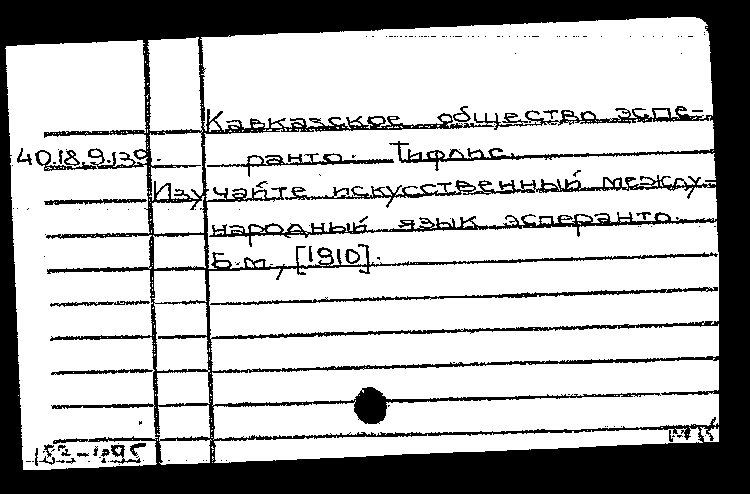 Кавказское общество эспе-
40.18.9.139. ранто. Тифлис.
Изучайте искусственный между-
народный язык эсперанто.
Б.м., [1910].
183-495